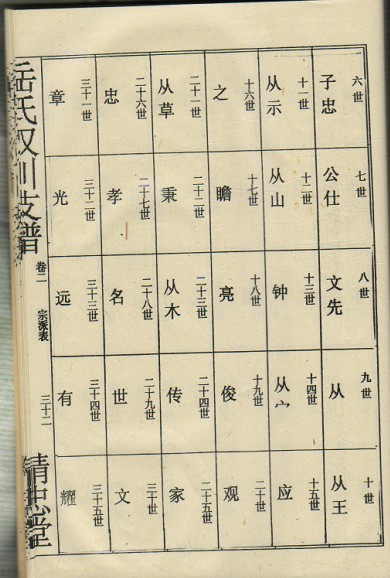 六世 子忠
七世 公仕
八世 文先
九世 从
十世 从王
十一世 从示
十二世 从山
十三世 钟
十四世 从宀
十五世 应
十六世 之
十七世 瞻
十八世 亮
十九世 俊
二十世 观
二十一世 从草
二十二世 秉
二十三世 从木
二十四世 传
二十五世 家
二十六世 忠
二十七世 孝
二十八世 名
二十九世 世
三十世 文
三十一世 章
三十二世 光
三十三世 远
三十四世 有
三十五世 耀
岳氏汉川支谱
卷二 宗派表 三十二
精忠堂